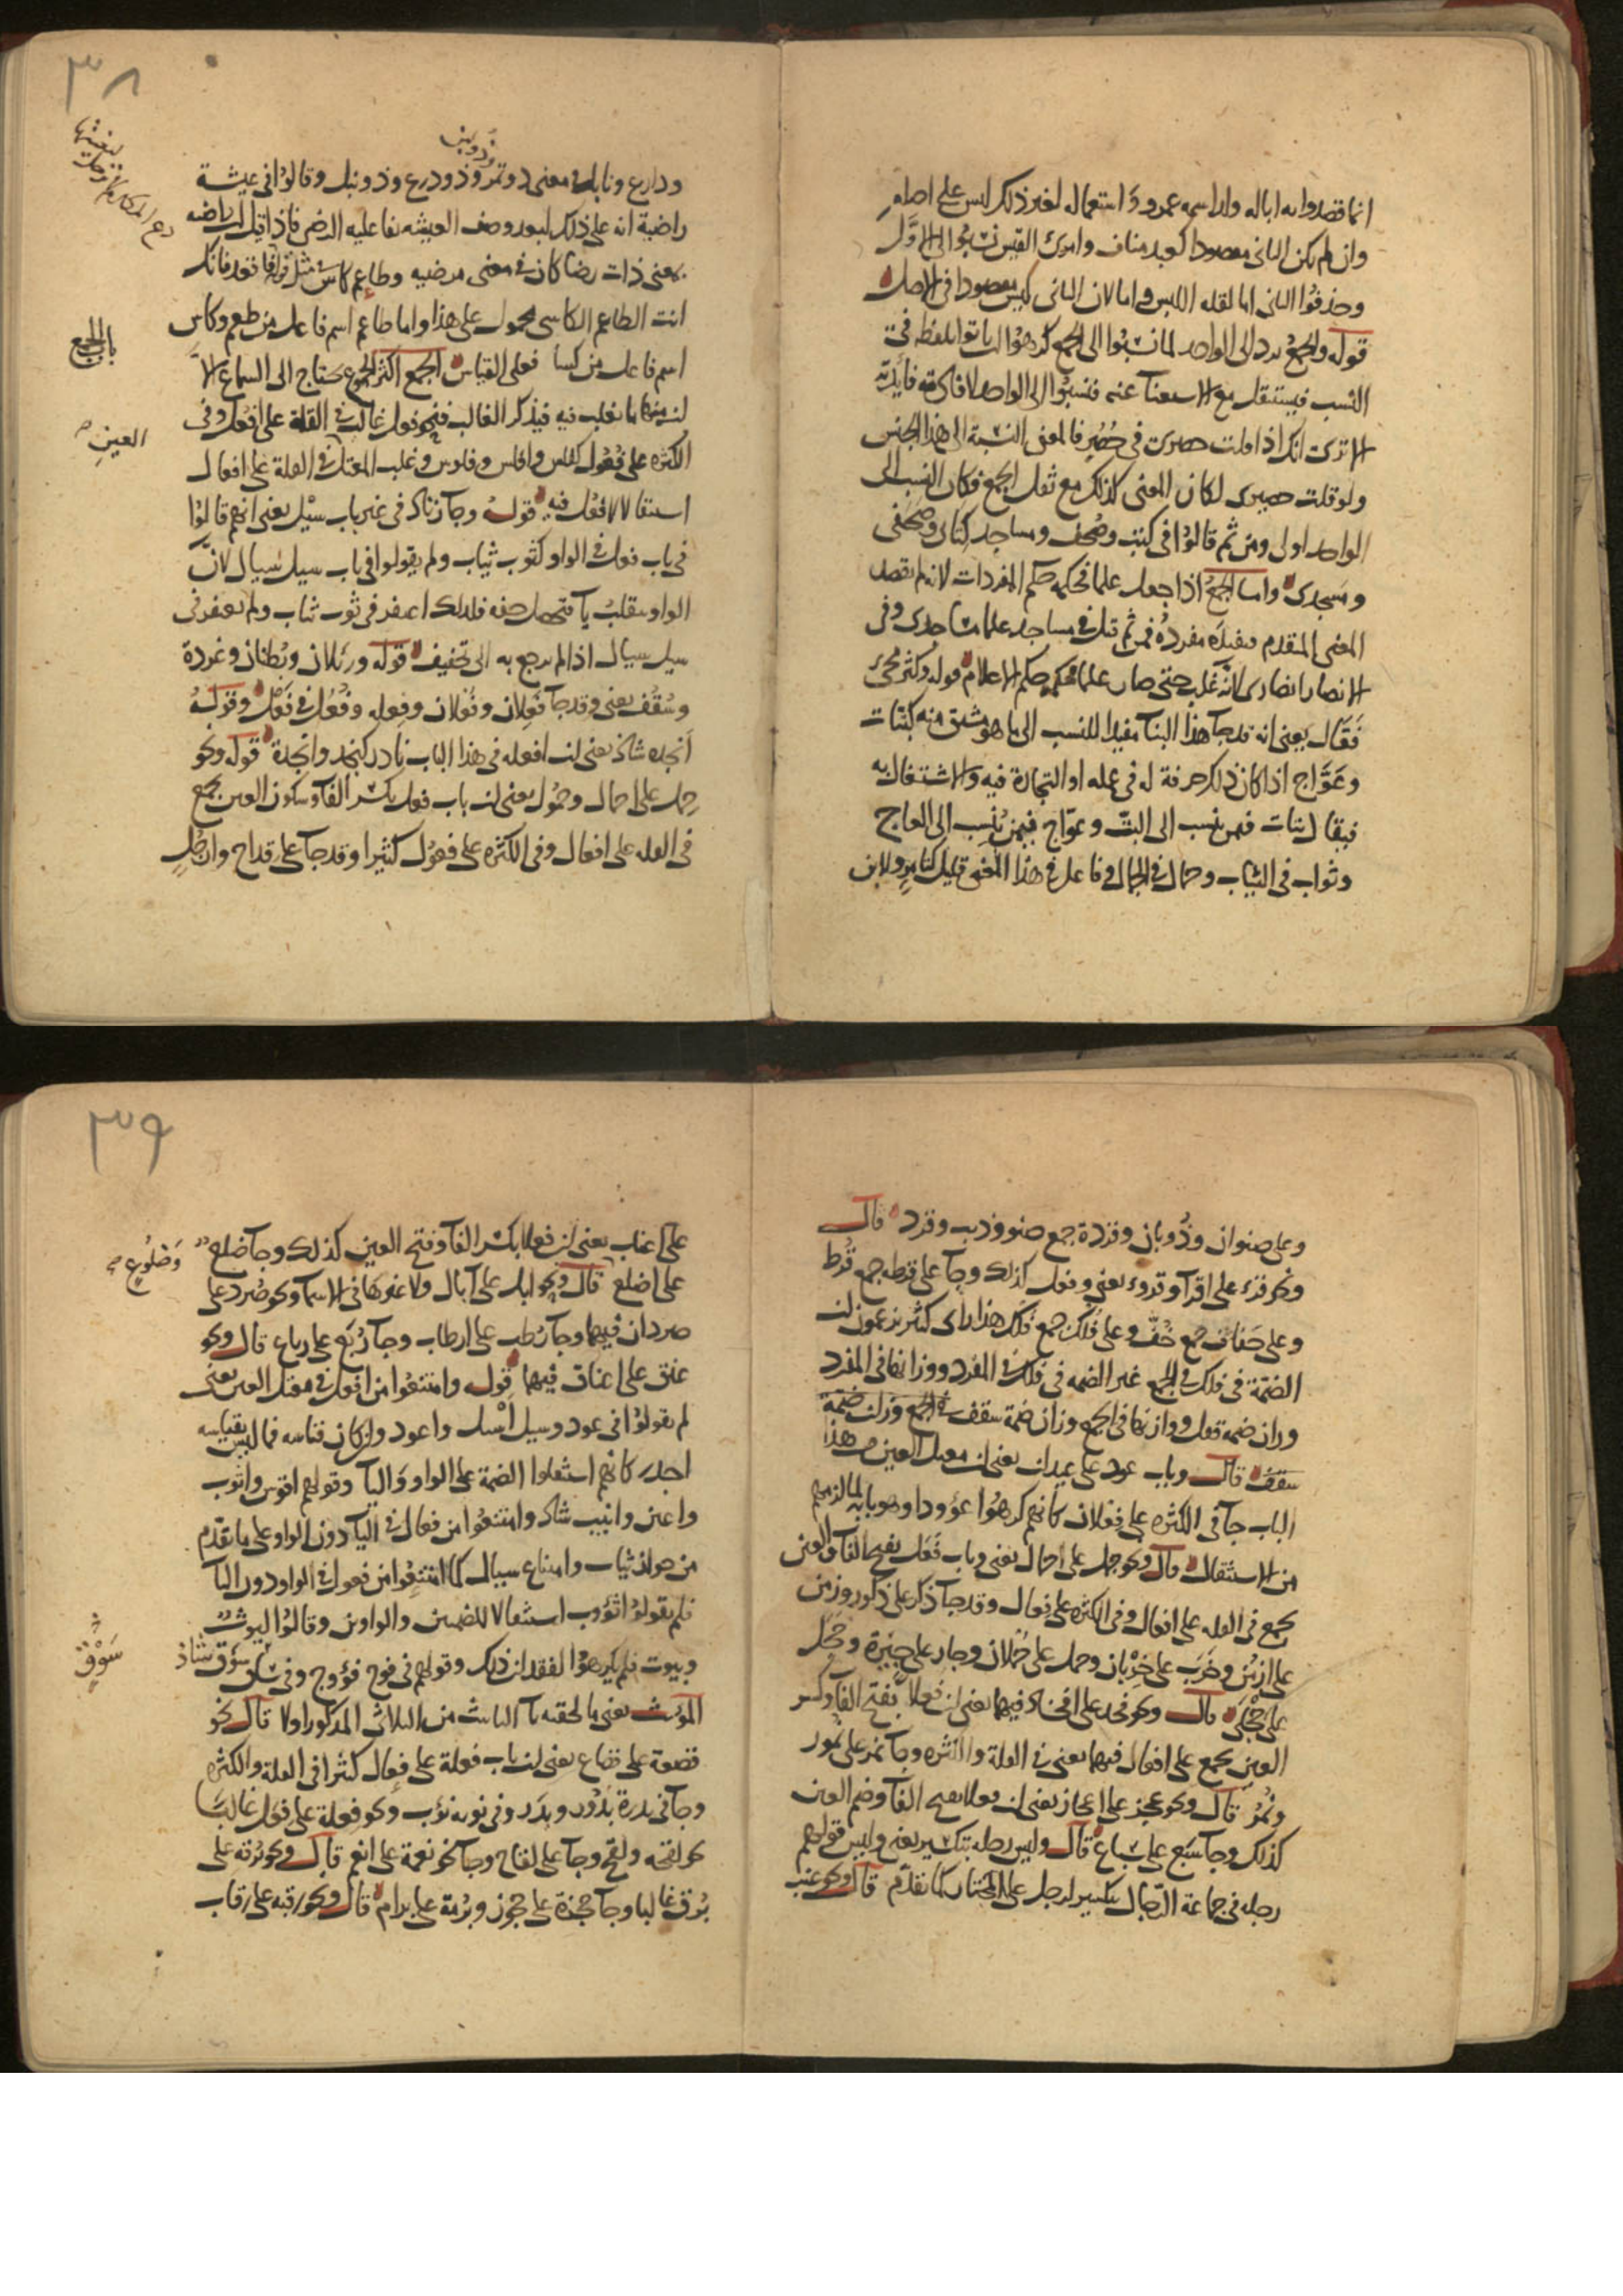 انما قصدوا به اباله ولد اسمه عمرو و استعماله لغير ذلك ليس على اصله
وان لم يكن الثاني مقصودا كعبد مناف وامرئ القيس نسبوا الى الاول
وحذفوا الثاني اما لقله اللبس واما لان الثاني ليس مقصودا في الاصل
قوله والجمع يرد الى الواحد لما نسبوا الى الجمع كرهوا ان ياتوا بلفظه في
النسب فيستثقل مع الاستغنآ عنه فنسبوا الى الواحد لافادته فائدته
الا ترى انك اذا قلت حصيري في حصر فالمعنى النسبة الى هذا الجنس
ولو قلت حصري لكان المعنى كذلك مع ثقل الجمع فكان النسب الى
الواحد اولى ومن ثم قالوا في كتب وصحف ومساجد كتابي وصحفي
ومسجدي واما الجمع اذا جعل علما فحكمه حكم المفردات لانه لم يقصد
المعنى المتقدم مفرده فمن ثم قيل في مساجد علما مساجدي وفي
الانصار انصاري لانه غلب حتى صار علما فحكمه حكم الاعلام قوله وكثر مجئ
فعّال يعني انه قد جآ هذا البنآ مفيدا للنسب الى ما هو مشتق منه كبتات
وعوّاج اذا كان ذلك حرفة له في عمله او التجارة فيه والاشتغال به
فيقال بتات فيمن ينسب الى البتّ وعوّاج فيمن ينسب الى العاج
وثواب في الثياب وجمال في الجمال وفاعل في هذا المعنى قليل كتامر ولابن
٣٨
وذو لبن
ودارع ونابل في معنى ذو تمر وذو درع وذو نبل وقالوا في عيشة
راضية انه على ذلك لبعد وصف العيشه بفاعليه الرضى فاذا قيل راضيه
بمعنى ذات رضا كان في معنى مرضيه وطاعم كاس في مثل قوله اقعد فانك
انت الطاعم الكاسي محمول على هذا واما طاعم اسم فاعل من طعم وكاس
اسم فاعل من كسا فعلى القياس الجمع اكثر الجموع محتاج الى السماع الا
ان منها ما يغلب فيه فيذكر الغالب فنحو فعل غالب في القلة على افعل وفي
الكثره على فعول كفلس وافلس وفلوس وغلب المعتل في القلة على افعال
استثقالا لافعل فيه قوله وجآ زناد في غير باب سيل يعني انهم قالوا
في باب فعل في الواو كثوب ثياب ولم يقولوا في باب سيل سيال لان
الواو تنقلب يآ فتحصل خفه فلذلك اغتفر في ثوب ثياب ولم يغتفر في
سيل سيال اذ لم يرجع به الى تخفيف قوله ورئلان وبطنان وغردة
وسقف يعني وقد جآ فعلان وفعلان وفعله وفعل في فعل وقوله
انجده شاذ يعني ان افعله في هذا الباب نادر كنجد وانجدة قوله ونحو
حمل على احمال وحمول يعني ان باب فعل بكسر الفآ وسكون العين يجمع
في القله على افعال وفي الكثره على فعول كثيرا وقد جآ على قداح وارجل
دع المكارم لا ترحل لبغيتها
باب الجمع
العين
وعلى صنوان وذؤبان وقردة جمع صنو وذيب وقرد قال
ونحو قرء على اقرآ وقروء يعني وفعل كذلك وجآ على قرطه جمع قرط
وعلى خفاف جمع خف وعلى فلك جمع فلك هذا راى كثير يزعمون ان
الضمّة في فلك في الجمع غير الضمه في فلك في المفرد ووزانها في المفرد
وزان ضمه قفل ووزانها في الجمع وزان ضمة سقف في الجمع وزان ضمة
سقف قال وباب عود على عيدان يعني ان معتل العين من هذا
الباب جآ في الكثره على فعلان كانهم كرهوا عوودا وهو بابه لما لزمهم
من الاستثقال قال ونحو جمل على اجمال يعني وباب فعل بفتح الفآ والعين
يجمع في القله على افعال وفي الكثره على فعال وقد جآ ذكر على ذكور وزمن
على ازمن وخرب على خربان وحمل على حملان وجار على جيرة وحجل
على حجلى قال ونحو فخذ على افخاذ فيهما يعني ان فعلا بفتح الفآ وكسر
العين يجمع على افعال فيهما يعني في القلة والكثره وجآ نمر على نمور
ونمر قال ونحو عجز على اعجاز يعني ان فعلا بفتح الفآ وضم العين
كذلك وجآ سبع على سباع قال وليس رجله بتكسير يعني وليس قولهم
رجله في جماعة الرجال بتكسير لرجل على المختار كما تقدّم قال ونحو عنب
٣٩
على اعناب يعني ان فعلا بكسر الفآ وفتح العين كذلك وجآ ضلع
على اضلع قال ونحو ابل على آبال ولا غيرها في الاسمآ ونحو صرد على
صردان فيهما وجآ رطب على ارطاب وجآ ربع على رباع قال ونحو
عنق على اعناق فيهما قوله وامتنعوا من افعل في معتل العين يعني
لم يقولوا في عود وسيل اسيل واعود وان كان قياسه فما ليس بقياسه
اجدر كانهم استثقلوا الضمة على الواو واليآ وقولهم اقوس واثوب
واعين وانيب شاذ وامتنعوا من فعال في اليآ دون الواو على ما تقدّم
من جواز ثياب وامتناع سيال كما امتنعوا من فعول في الواو دون اليآ
فلم يقولوا ثووب استثقالا للضمتين والواوين وقالوا ليوث
وبيوت فلم يكرهوا لفقدان ذلك وقولهم في فوج فؤوج وفي ساق سؤق شاذ
المؤنث يعني ما لحقه تآ التانيث من الثلاثي المذكور اولا قال نحو
قصعة على قصاع يعني ان باب فعلة على فعال كثيرا في القلة والكثره
وجآ في بدرة بدور وبدر وفي نوبه نوب ونحو فعلة على فعل غالبا
نحو لقحه ولقح وجآ على لقاح وجآ نحو نعمة على انعم قال ونحو برقه على
برق غالبا وجآ حجزة على حجوز وبرمة على برام قال ونحو رقبه على رقاب
وضلوع
سوق